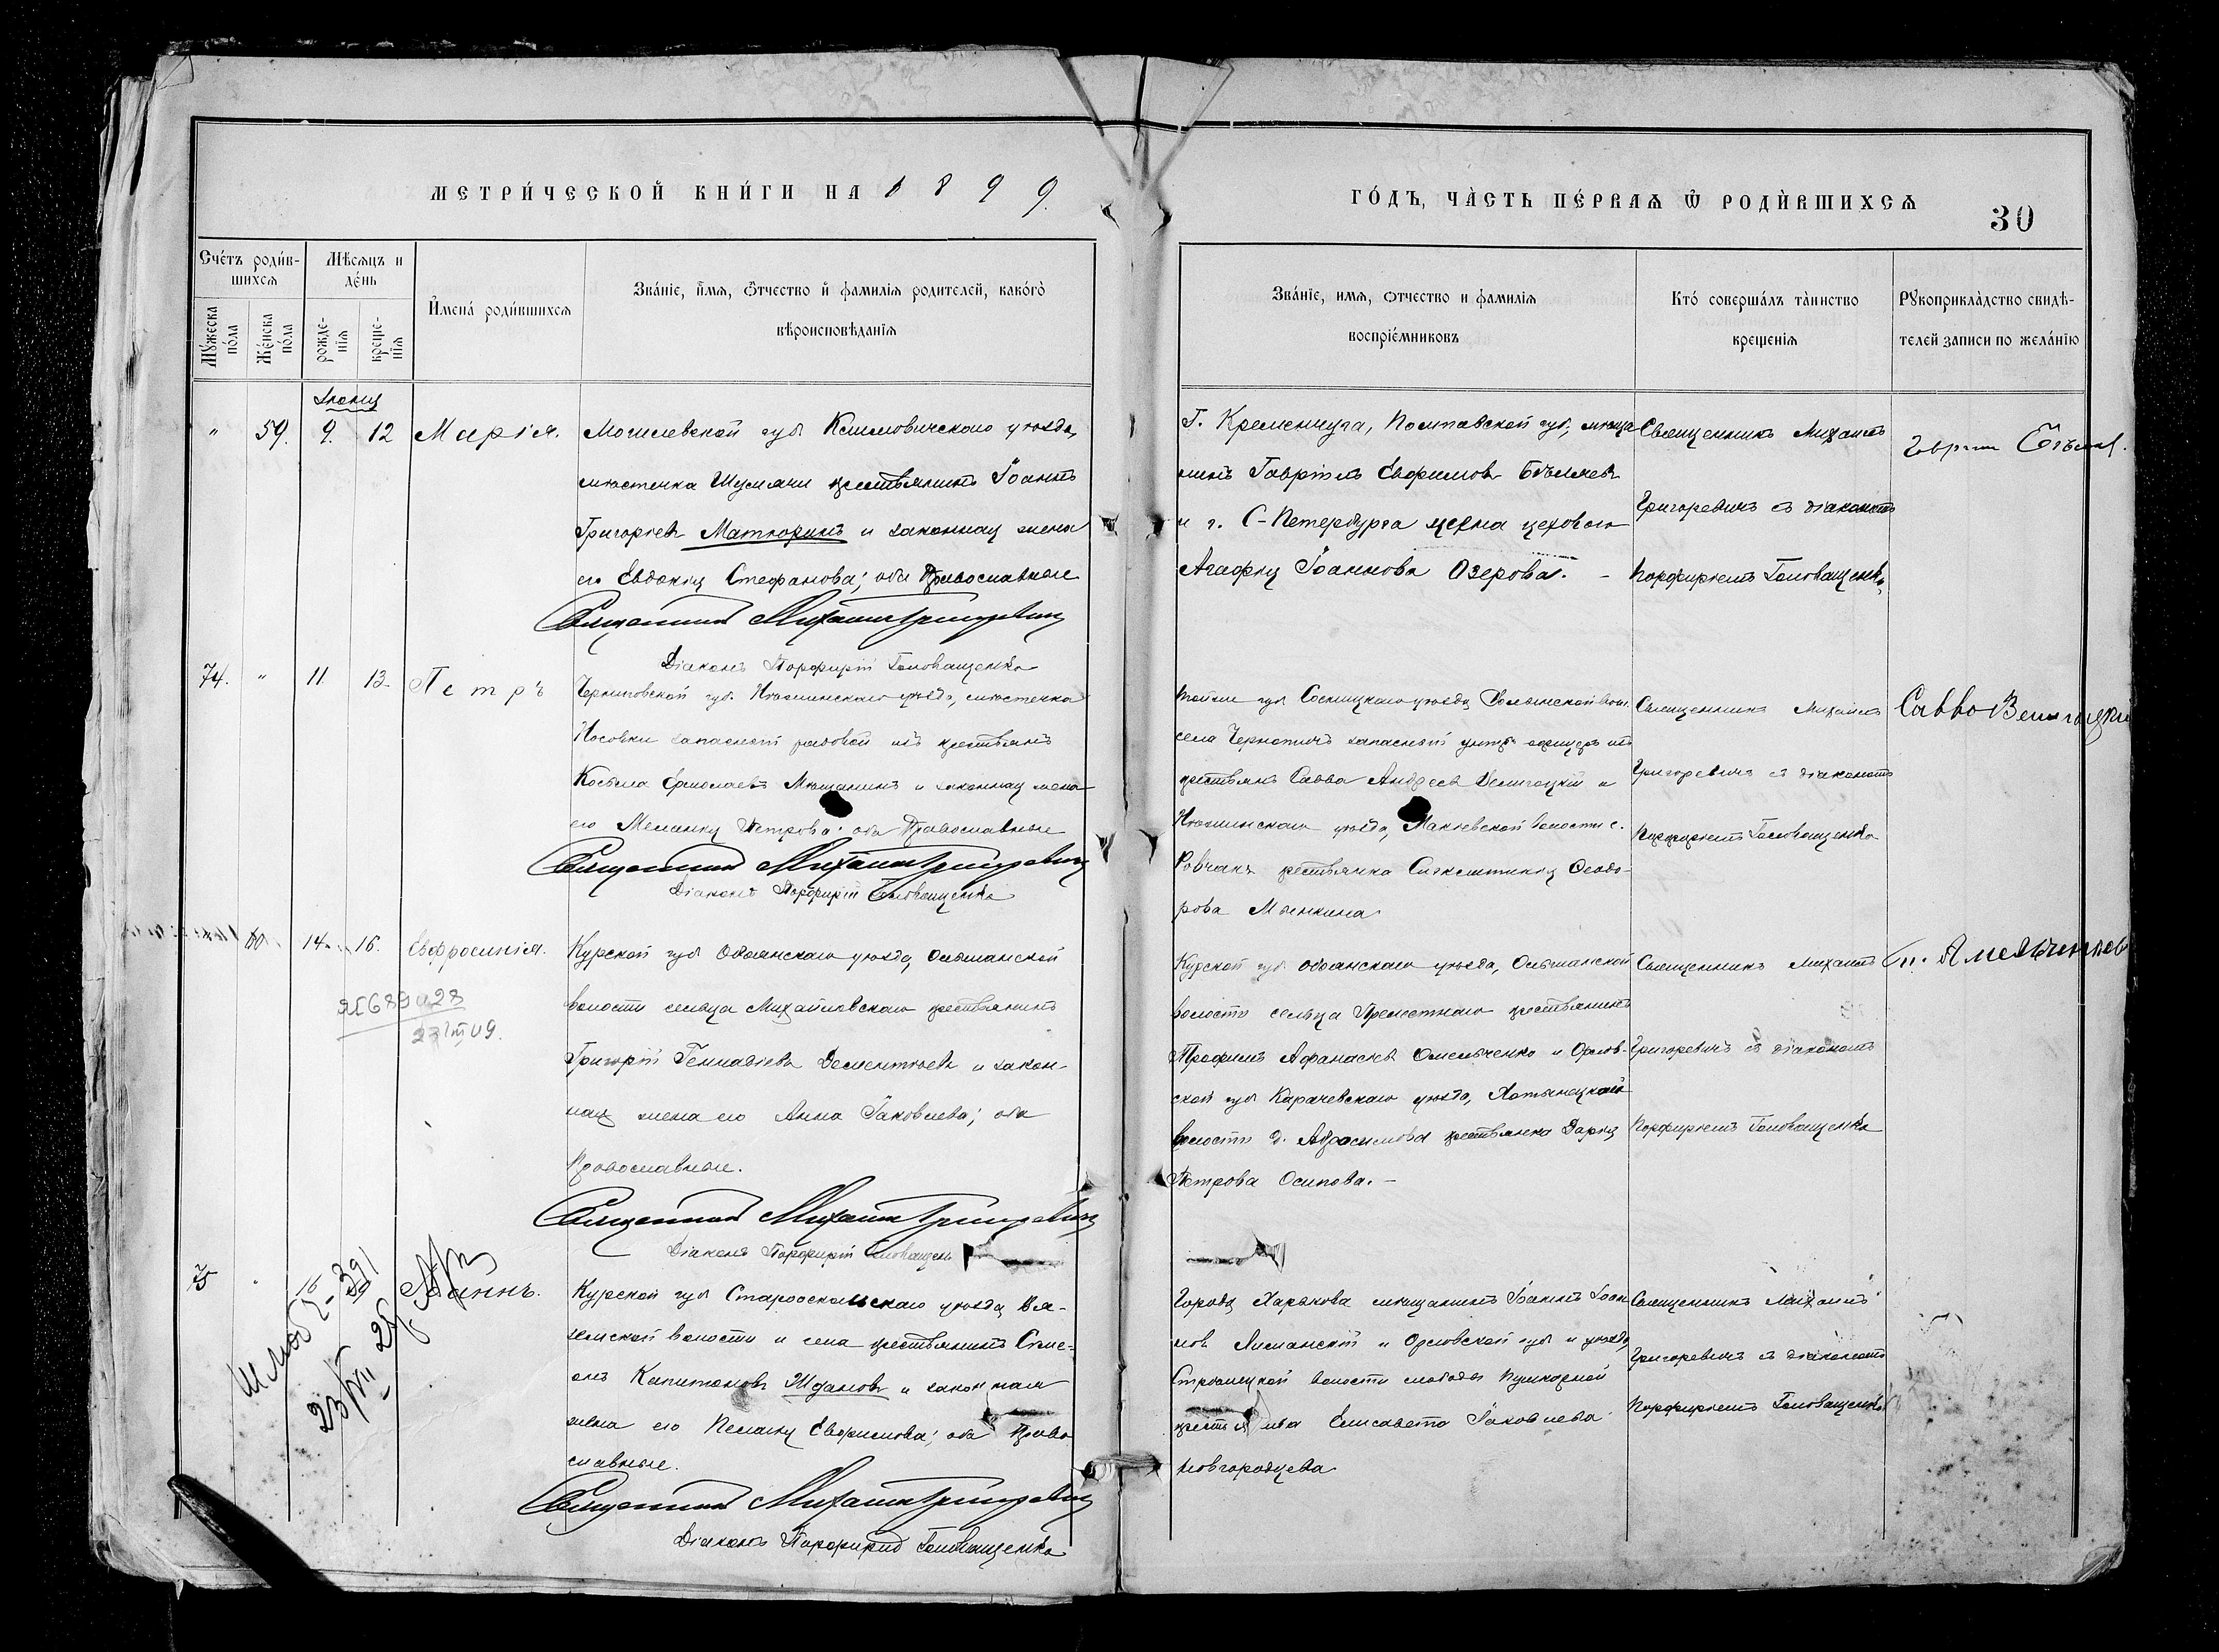 МЕТРИ́ЧЕСКОЙ КНИ́ГИ НА 1899.
ГО́ДЪ, ЧА̀СТЬ ПЕ́РВАѦ Ѿ РОДЍВШИХСѦ
30
Счéтъ роди́в-
шихсѧ
Мꙋ́жеска
по́ла
Же́нска
по́ла
Мѣ́сѧцъ и
де́нь
рожде-
нїѧ
креще-
нїѧ
И҆мена̀ роди́вшихсѧ
Зва́нїе, и҆́мѧ, ѻ҆́тчество и҆ фамилїѧ родителей, како́гѡ
вѣроисповѣ́данїѧ
Зва́нїе, имѧ, ѻтчество и фамилїѧ
воспрїе́мниковъ
Кто́ соверша́лъ та̀инство
креще́нїѧ
Рꙋкоприкла́дство свидѣ́-
телей записи по жела́нїю
Іюнь
" 59. 9. 12 Марія.
Могилевской губ Климовичскаго уѣзда,
мѣстечка Шумячи крестьянинъ Іоаннъ
Григорьевъ Матюринъ и законная жена
его Евдокія Стефанова; оба Православные
Священникъ Михаилъ Григоревичъ
Діаконъ Порфирій Головащенко
Г. Кременчуга, Полтавской губ., мѣща
нинъ Гавріилъ Евфимовъ Бѣляевъ
и г. С-Петербурга жена цеховаго
Агафія Іоаннова Озерова. -
Священникъ Михаилъ
Григоревичъ съ діакономъ
Порфиріемъ Головащенко,
74. " 11. 13. Петръ
Черниговской губ. Нѣжинскаго уѣзда, мѣстечка
Носовки запасной рядовой изъ крестьянъ
Косьма Ермолаевъ Мѣщанинъ и законная жена
его Меланія Петрова; оба Православные
Священникъ Михаилъ Григоревичъ
Діаконъ Порфирій Головащенко
той же губ Сосницкаго уѣзда Волынской вол.
села Чернотичъ запасной унтеръ офицеръ изъ
крестьянъ Савва Андреевъ Велигоцкій и
Нѣжинскаго уѣзда, Макѣевской волости с.
крестьянка Синклитикія Ѳеодо-
рова
Священникъ Михаилъ
Григоревичъ съ діакономъ
Порфиріемъ Головащенко
Савва Велигоцкій
60 14 16. Евфросинія.
Курской губ Обоянскаго уѣзда, Ольшанской
волости сельца Михайловскаго крестьянинъ
Григорій Геннадіевъ Дементьевъ и закон-
ная жена его Анна Іаковлева; оба
Православные.
Священникъ Михаилъ Григоревичъ
Діаконъ Порфирій Головащенко
Курской губ Обоянскаго уѣзда, Ольшанской
волости сельца Прелестнаго крестьянинъ
Трофимъ Аѳанасьевъ Омельченко и Орлов-
ской губ Карачевскаго уѣзда, Хотынецкой
волости д. Абрасимова крестьянка Дарія
Петрова Осипова. -
Священникъ Михаилъ
Григоревичъ съ діакономъ
Порфиріемъ Головащенко
Т. Амельченков
75 " Іоаннъ.
Курской губ Старооскольскаго уѣзда Вя-
земской волости и села крестьянинъ Симе-
онъ Капитоновъ Ждановъ и законная
жена его Пелагія Евфимова; оба Право
славные.
Священникъ Михаилъ Григоревичъ
Діаконъ Порфирій Головащенко
Города Харькова мѣщанинъ Іоаннъ Іоан
новъ Лиманскій и Орловской губ и уѣзда,
Стрѣлецкой волости слободы Пушкарной
Елисавета Іаковлева
Новгородцева
Священникъ Михаилъ
Григоревичъ съ діакономъ
Порфиріемъ Головащенко